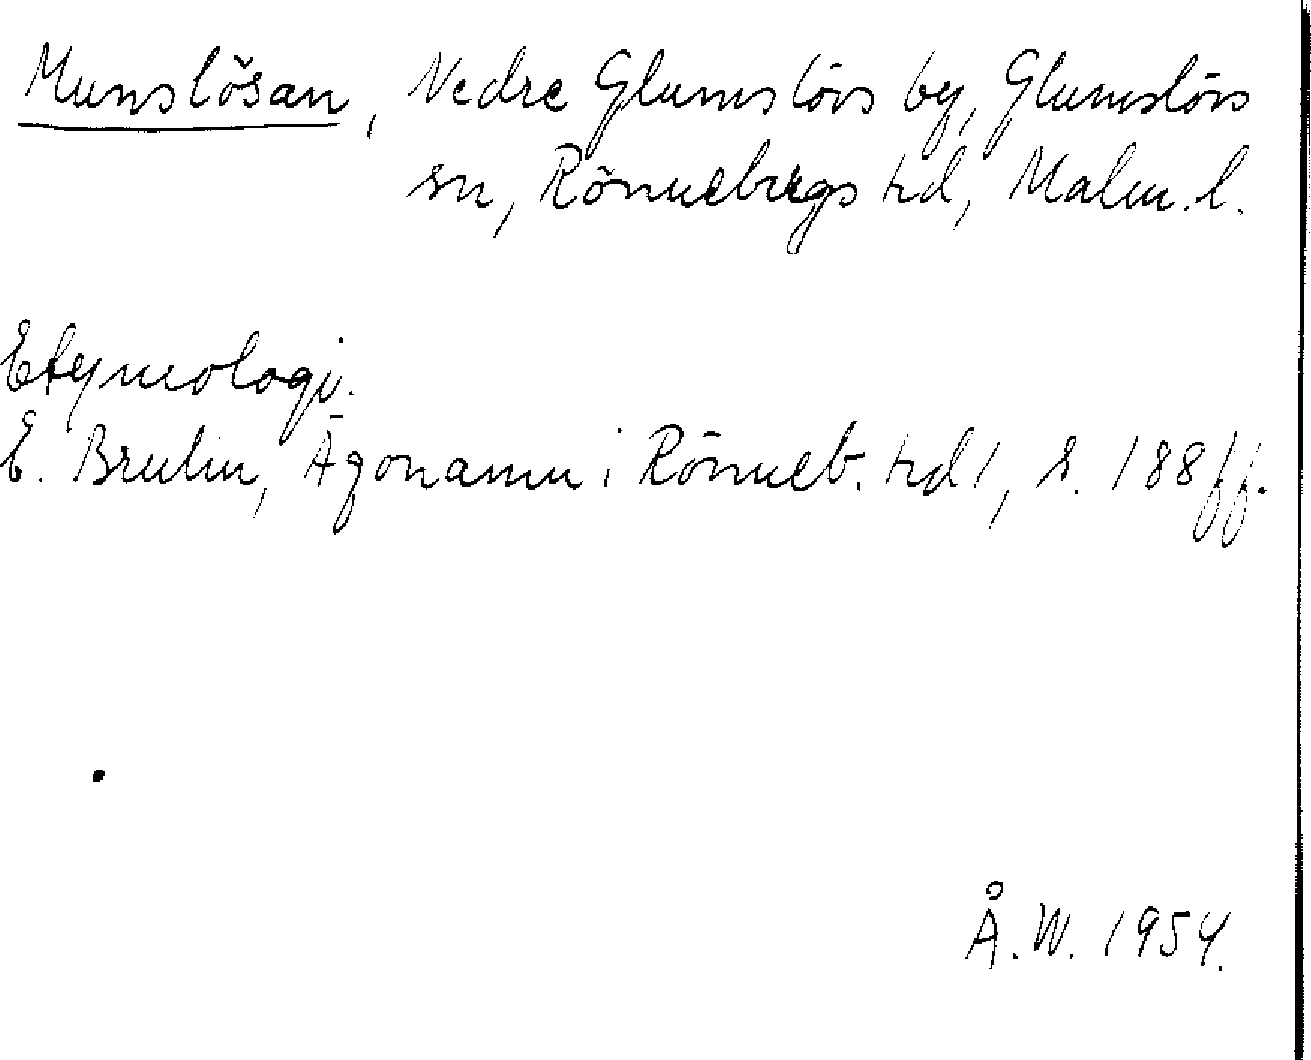 Munslösan, Nedre Glumslövs by, Glumslövs
sn, Rönnebergs hd, Malm. l.
Etymologi.
E. Brulin, Ägonamn i Rönneb. hd 1, s. 188 ff.
Å. W. 1954.